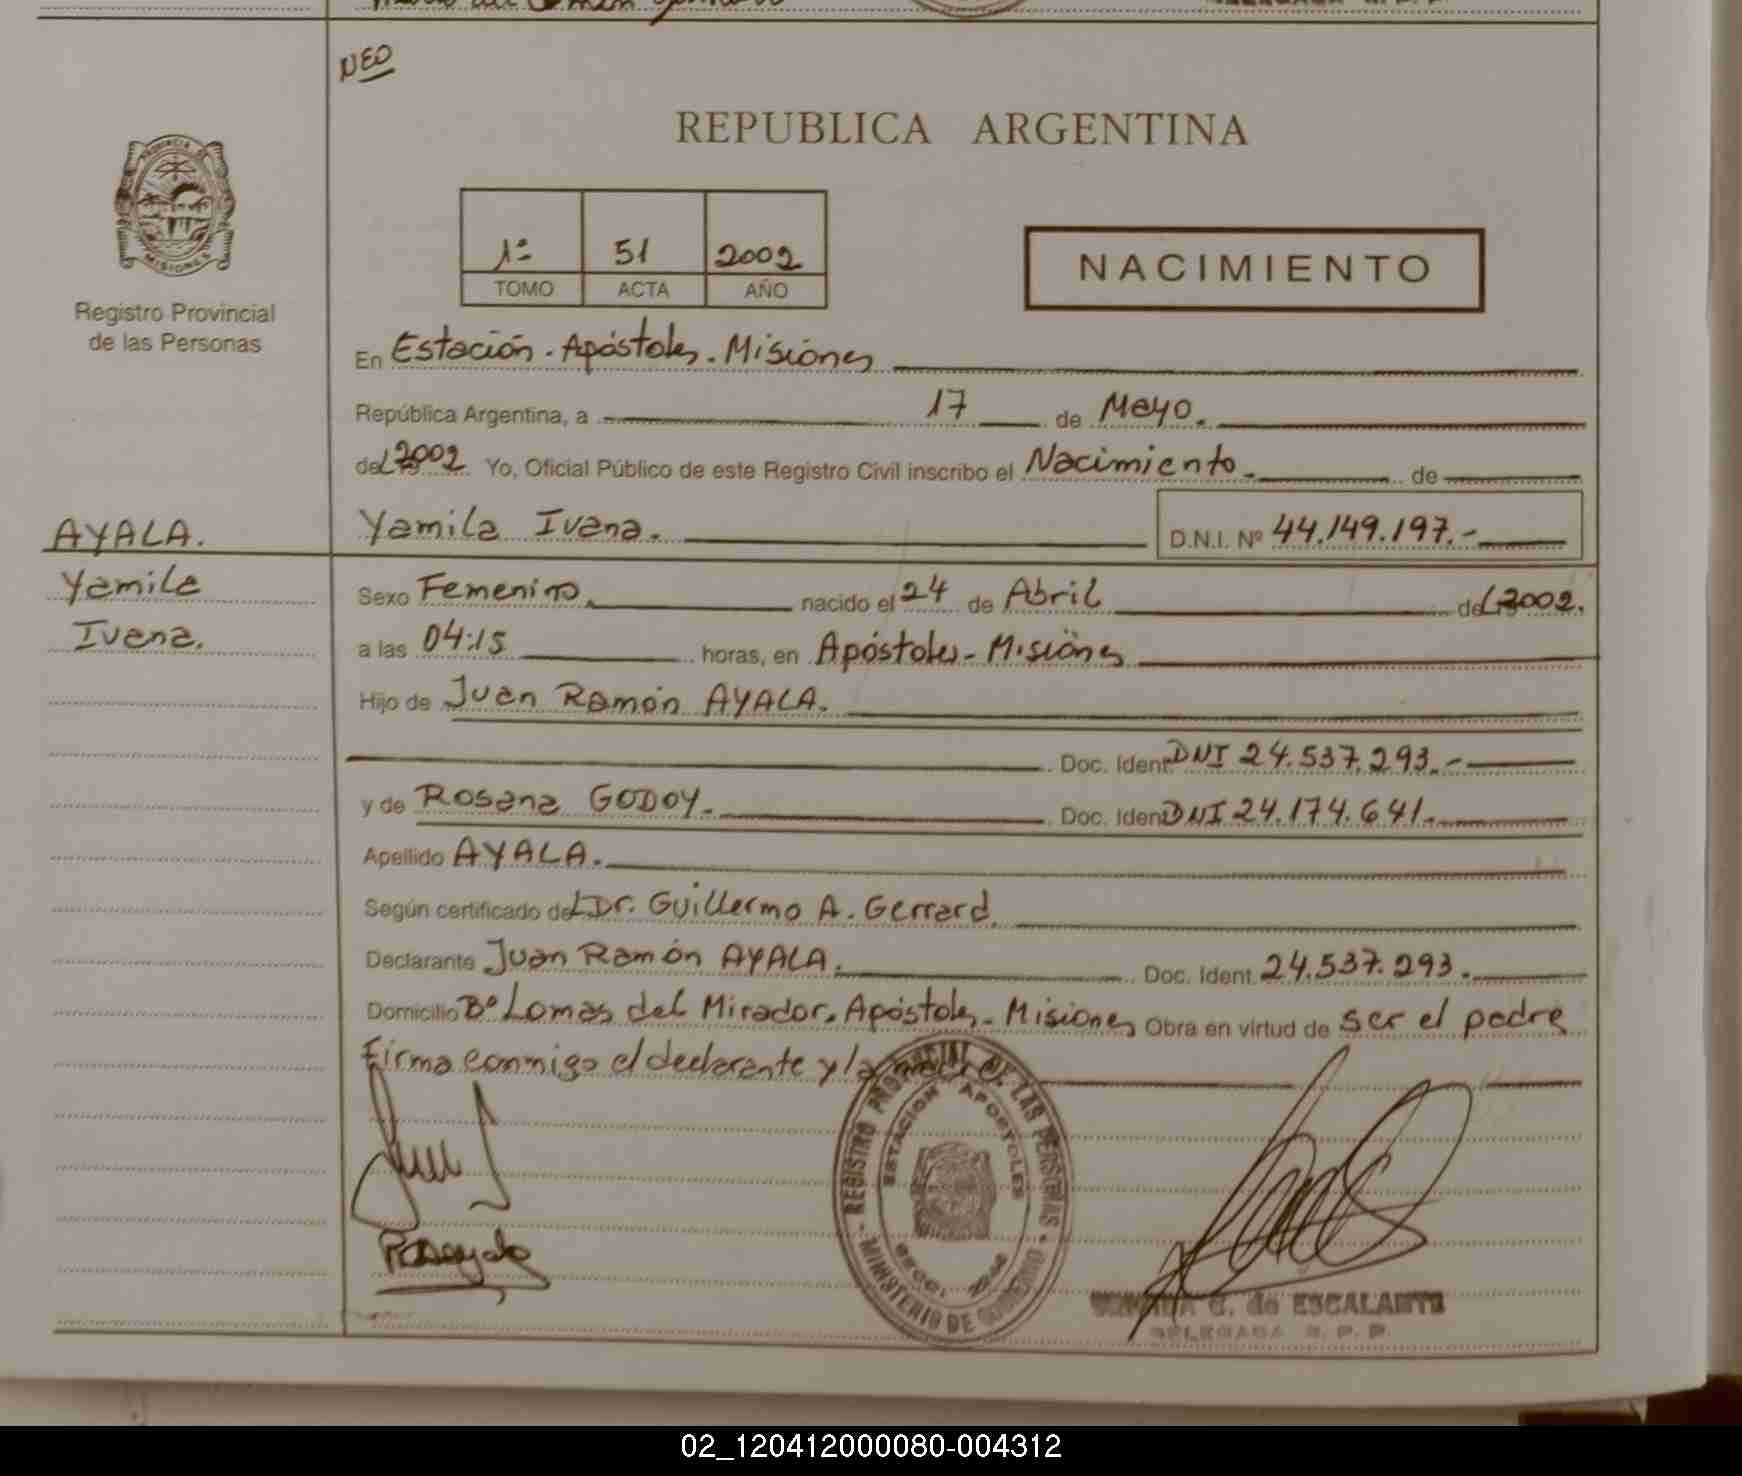 NEO
PROVINCIA DE
MISIONES
REPUBLICA ARGENTINA
1º 51 2002
TOMO ACTA AÑO
NACIMIENTO
Registro Provincial
de las Personas
En Estación - Apóstoles - Misiones
República Argentina, a 17 de Mayo.
del 2002. Yo, Oficial Público de este Registro Civil inscribo el Nacimiento de
AYALA. Yamila Ivana. D.N.I. Nº 44.149.197.-
Yamila Sexo Femenino. nacido el 24 de Abril del 2002.
Ivana. a las 04:15 horas, en Apóstoles - Misiones
Hijo de Juan Ramón AYALA.
Doc. Ident. DNI 24.537.293.-
y de Rosana GODOY. Doc. Ident. DNI 24.174.641.-
Apellido AYALA.
Según certificado del Dr. Guillermo A. Gerrard.
Declarante Juan Ramón AYALA. Doc. Ident. 24.537.293.
Domicilio Bº Lomas del Mirador. Apóstoles - Misiones Obra en virtud de ser el padre
Firma conmigo el declarante y la madre.
REGISTRO PROVINCIAL DE LAS PERSONAS
ESTACION APOSTOLES
MINISTERIO DE GOBIERNO
G. de ESCALANTE
DELEGADA R.P.P.
02_120412000080-004312